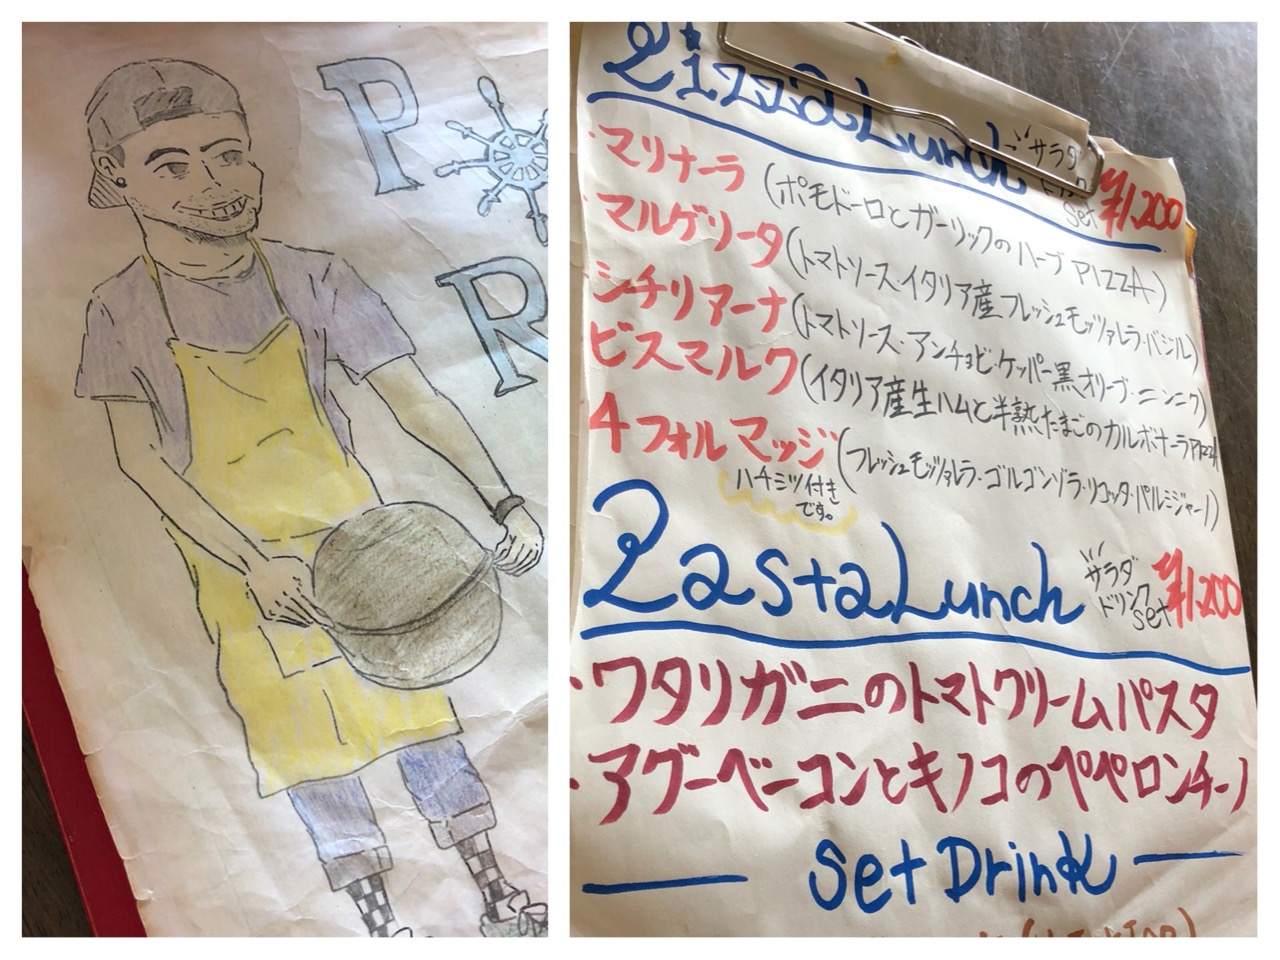 P
R
Pizza Lunch サラダ
ドリンク
set ¥1,200
・マリナーラ (ポモドーロとガーリックのハーブPIZZA)
・マルゲリータ (トマトソース・イタリア産フレッシュモッツァレラ・バジル)
シチリアーナ (トマトソース・アンチョビ・ケッパー黒オリーブ・ニンニク)
ビスマルク (イタリア産生ハムと半熟たまごのカルボナーラPIZZA
4フォルマッジ (フレッシュモッツァレラ・ゴルゴンゾラ・リコッタ・パルミジャーノ)
ハチミツ付き
です。
Pasta Lunch サラダ
ドリンク
set ¥1,200
・ワタリガニのトマトクリームパスタ
・アグーベーコンとキノコのペペロンチーノ
Set Drink